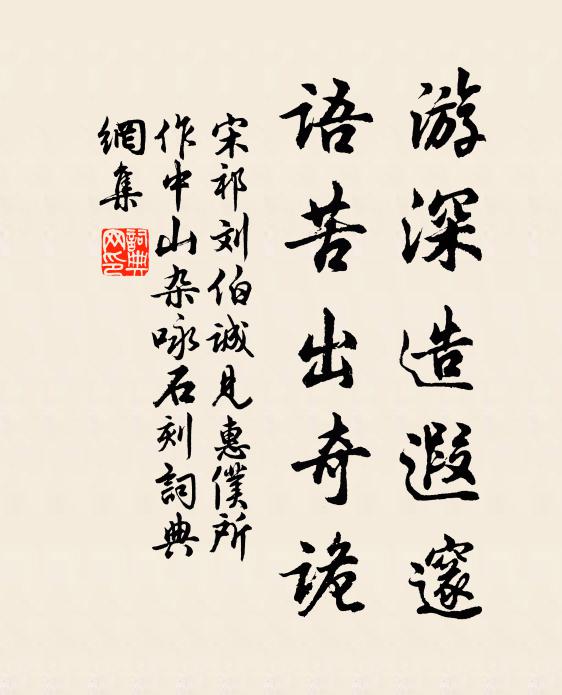 游深造遐邃
语苦出奇诡
宋祁刘伯诚见惠仆所
作中山杂咏石刻词典
网集
詞典网印